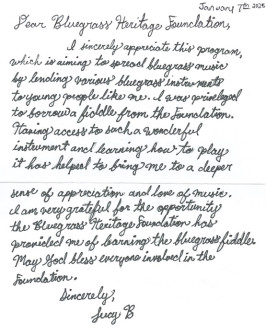 January 7th 2025
Dear Bluegrass Heritage Foundation,
I sincerely appreciate this program,
which is aiming to spread bluegrass music
by lending various bluegrass instruments
to young people like me. I was privileged
to borrow a fiddle from the Foundation.
Having access to such a wonderful
instrument and learning how to play
it has helped to bring me to a deeper
sense of appreciation and love of music.
I am very grateful for the opportunity
the Bluegrass Heritage Foundation has
provided me of learning the bluegrass fiddle.
May God bless everyone involved in the
Foundation.
Sincerely,
Lucy B